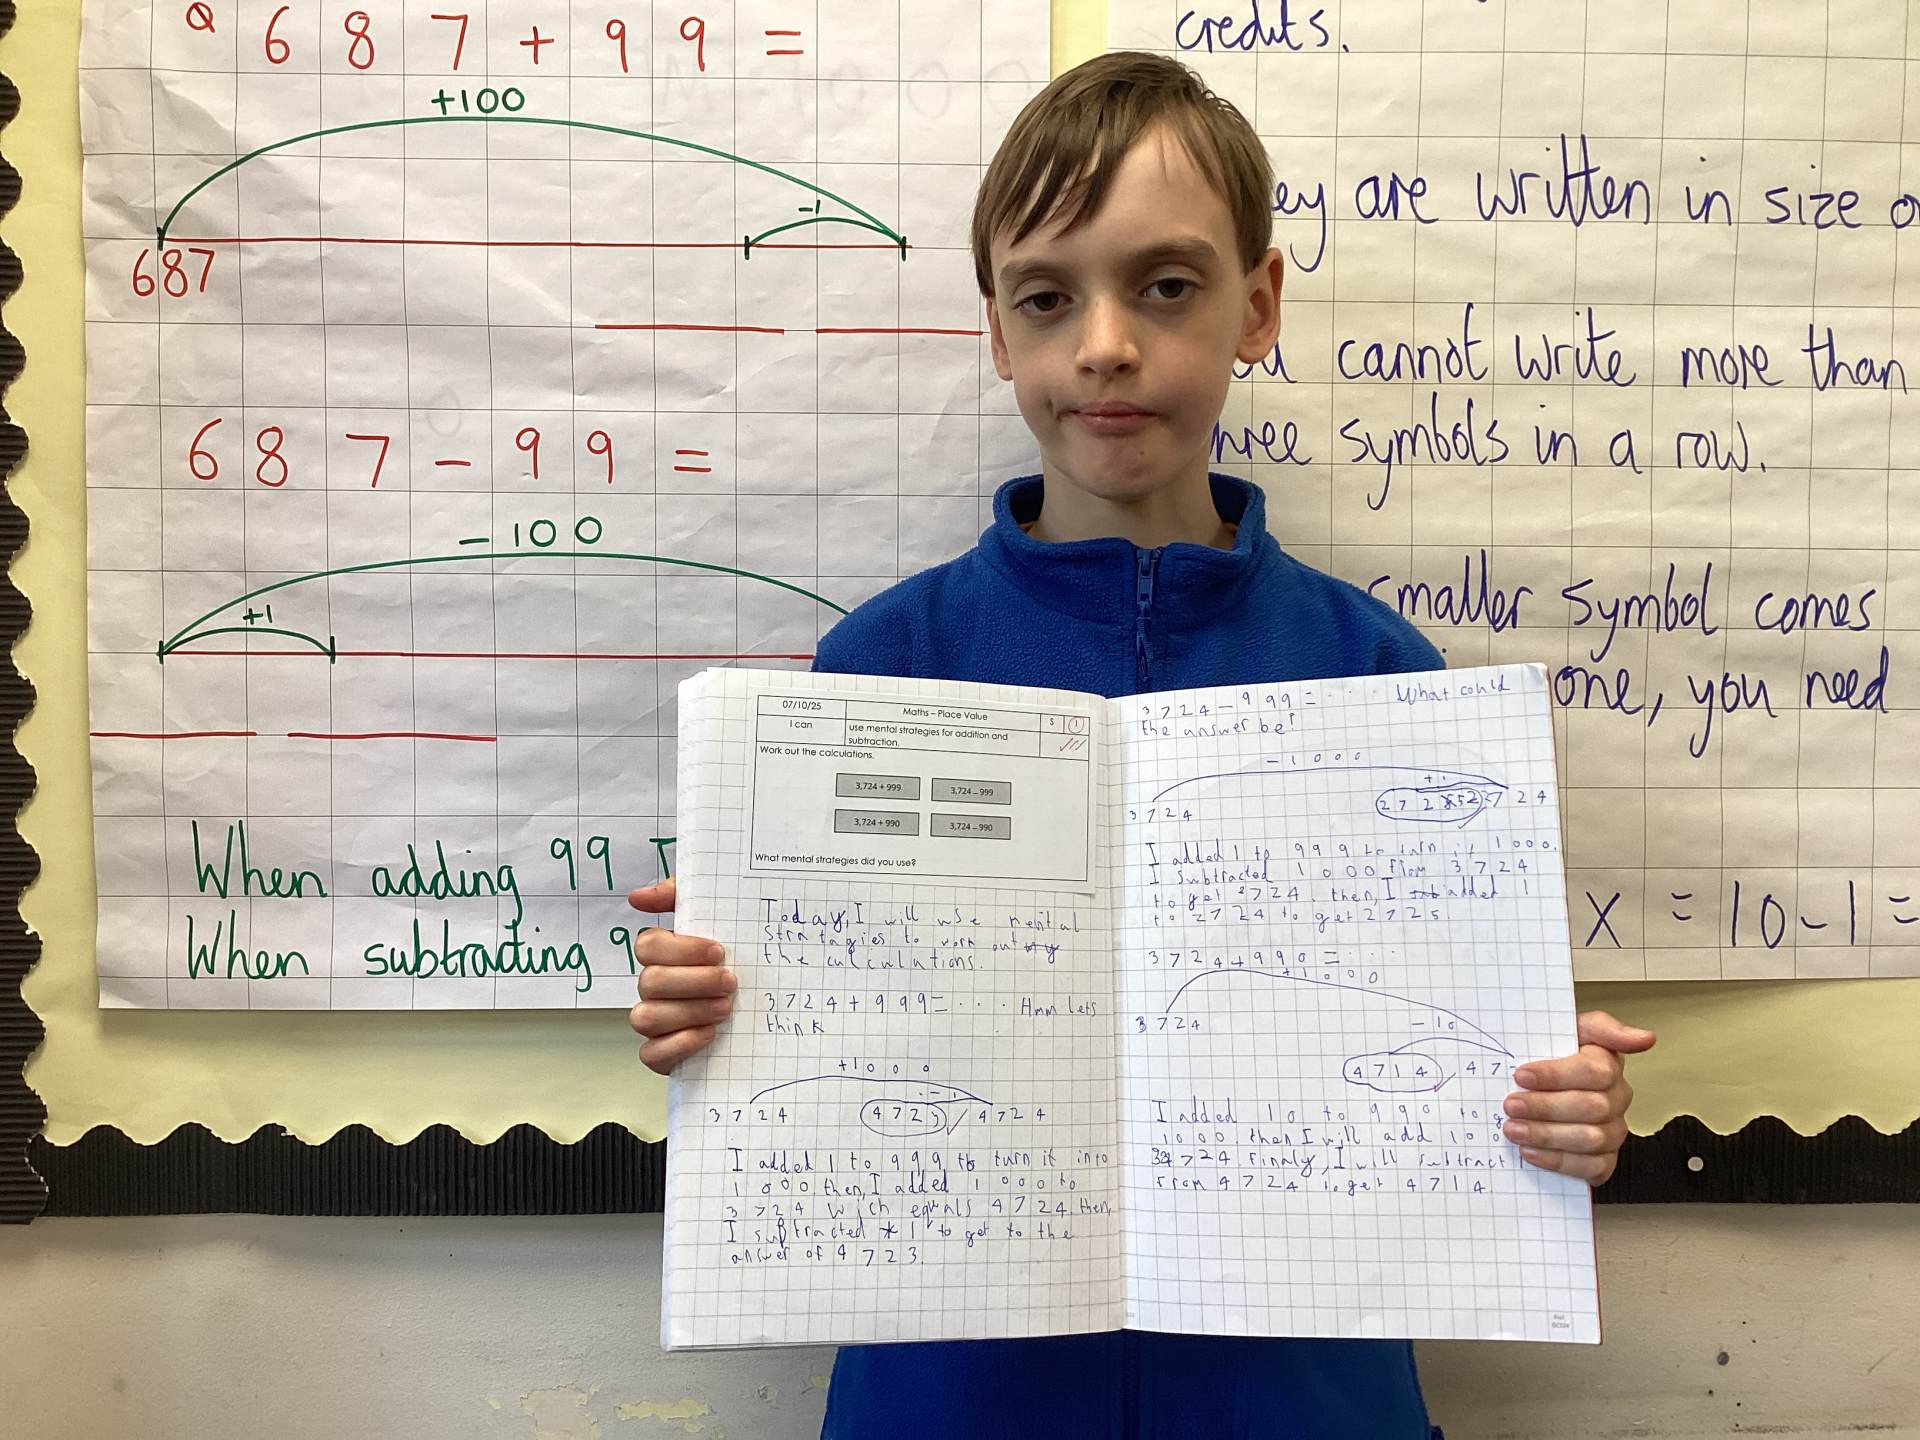 Q 687 + 99 =
+100
-1
687
687 - 99 =
-100
+1
When adding 99 I
When subtracting 99
credits.
ey are written in size o
cannot write more than
hree symbols in a row.
smaller symbol comes
one, you need
X = 10-1 =
07/10/25
Maths – Place Value
S
I
I can
use mental strategies for addition and
subtraction.
Work out the calculations.
3,724 + 999
3,724 – 999
3,724 + 990
3,724 – 990
What mental strategies did you use?
Today, I will use mental
stratagies to work out
the calculations.
3724 + 999 = ... Hmm lets
think
+1000
-1
3724 4723 4724
I added 1 to 999 to turn it into
1000 then, I added 1000 to
3724 wich equals 4724 then,
I subtracted 1 to get to the
answer of 4723.
3724 - 999 = ... What could
the answer be?
-1000
+1
3724 2725 2724
I added 1 to 999 to turn it 1000.
I subtracted 1000 from 3724
to get 2724. then, I added 1
to 2724 to get 2725.
3724 + 990 = ...
+1000
3724
-10
4714 47
I added 10 to 990 to g
1000. then I will add 100
3724 Finaly, I will subtract 1
from 4724 to get 4714.